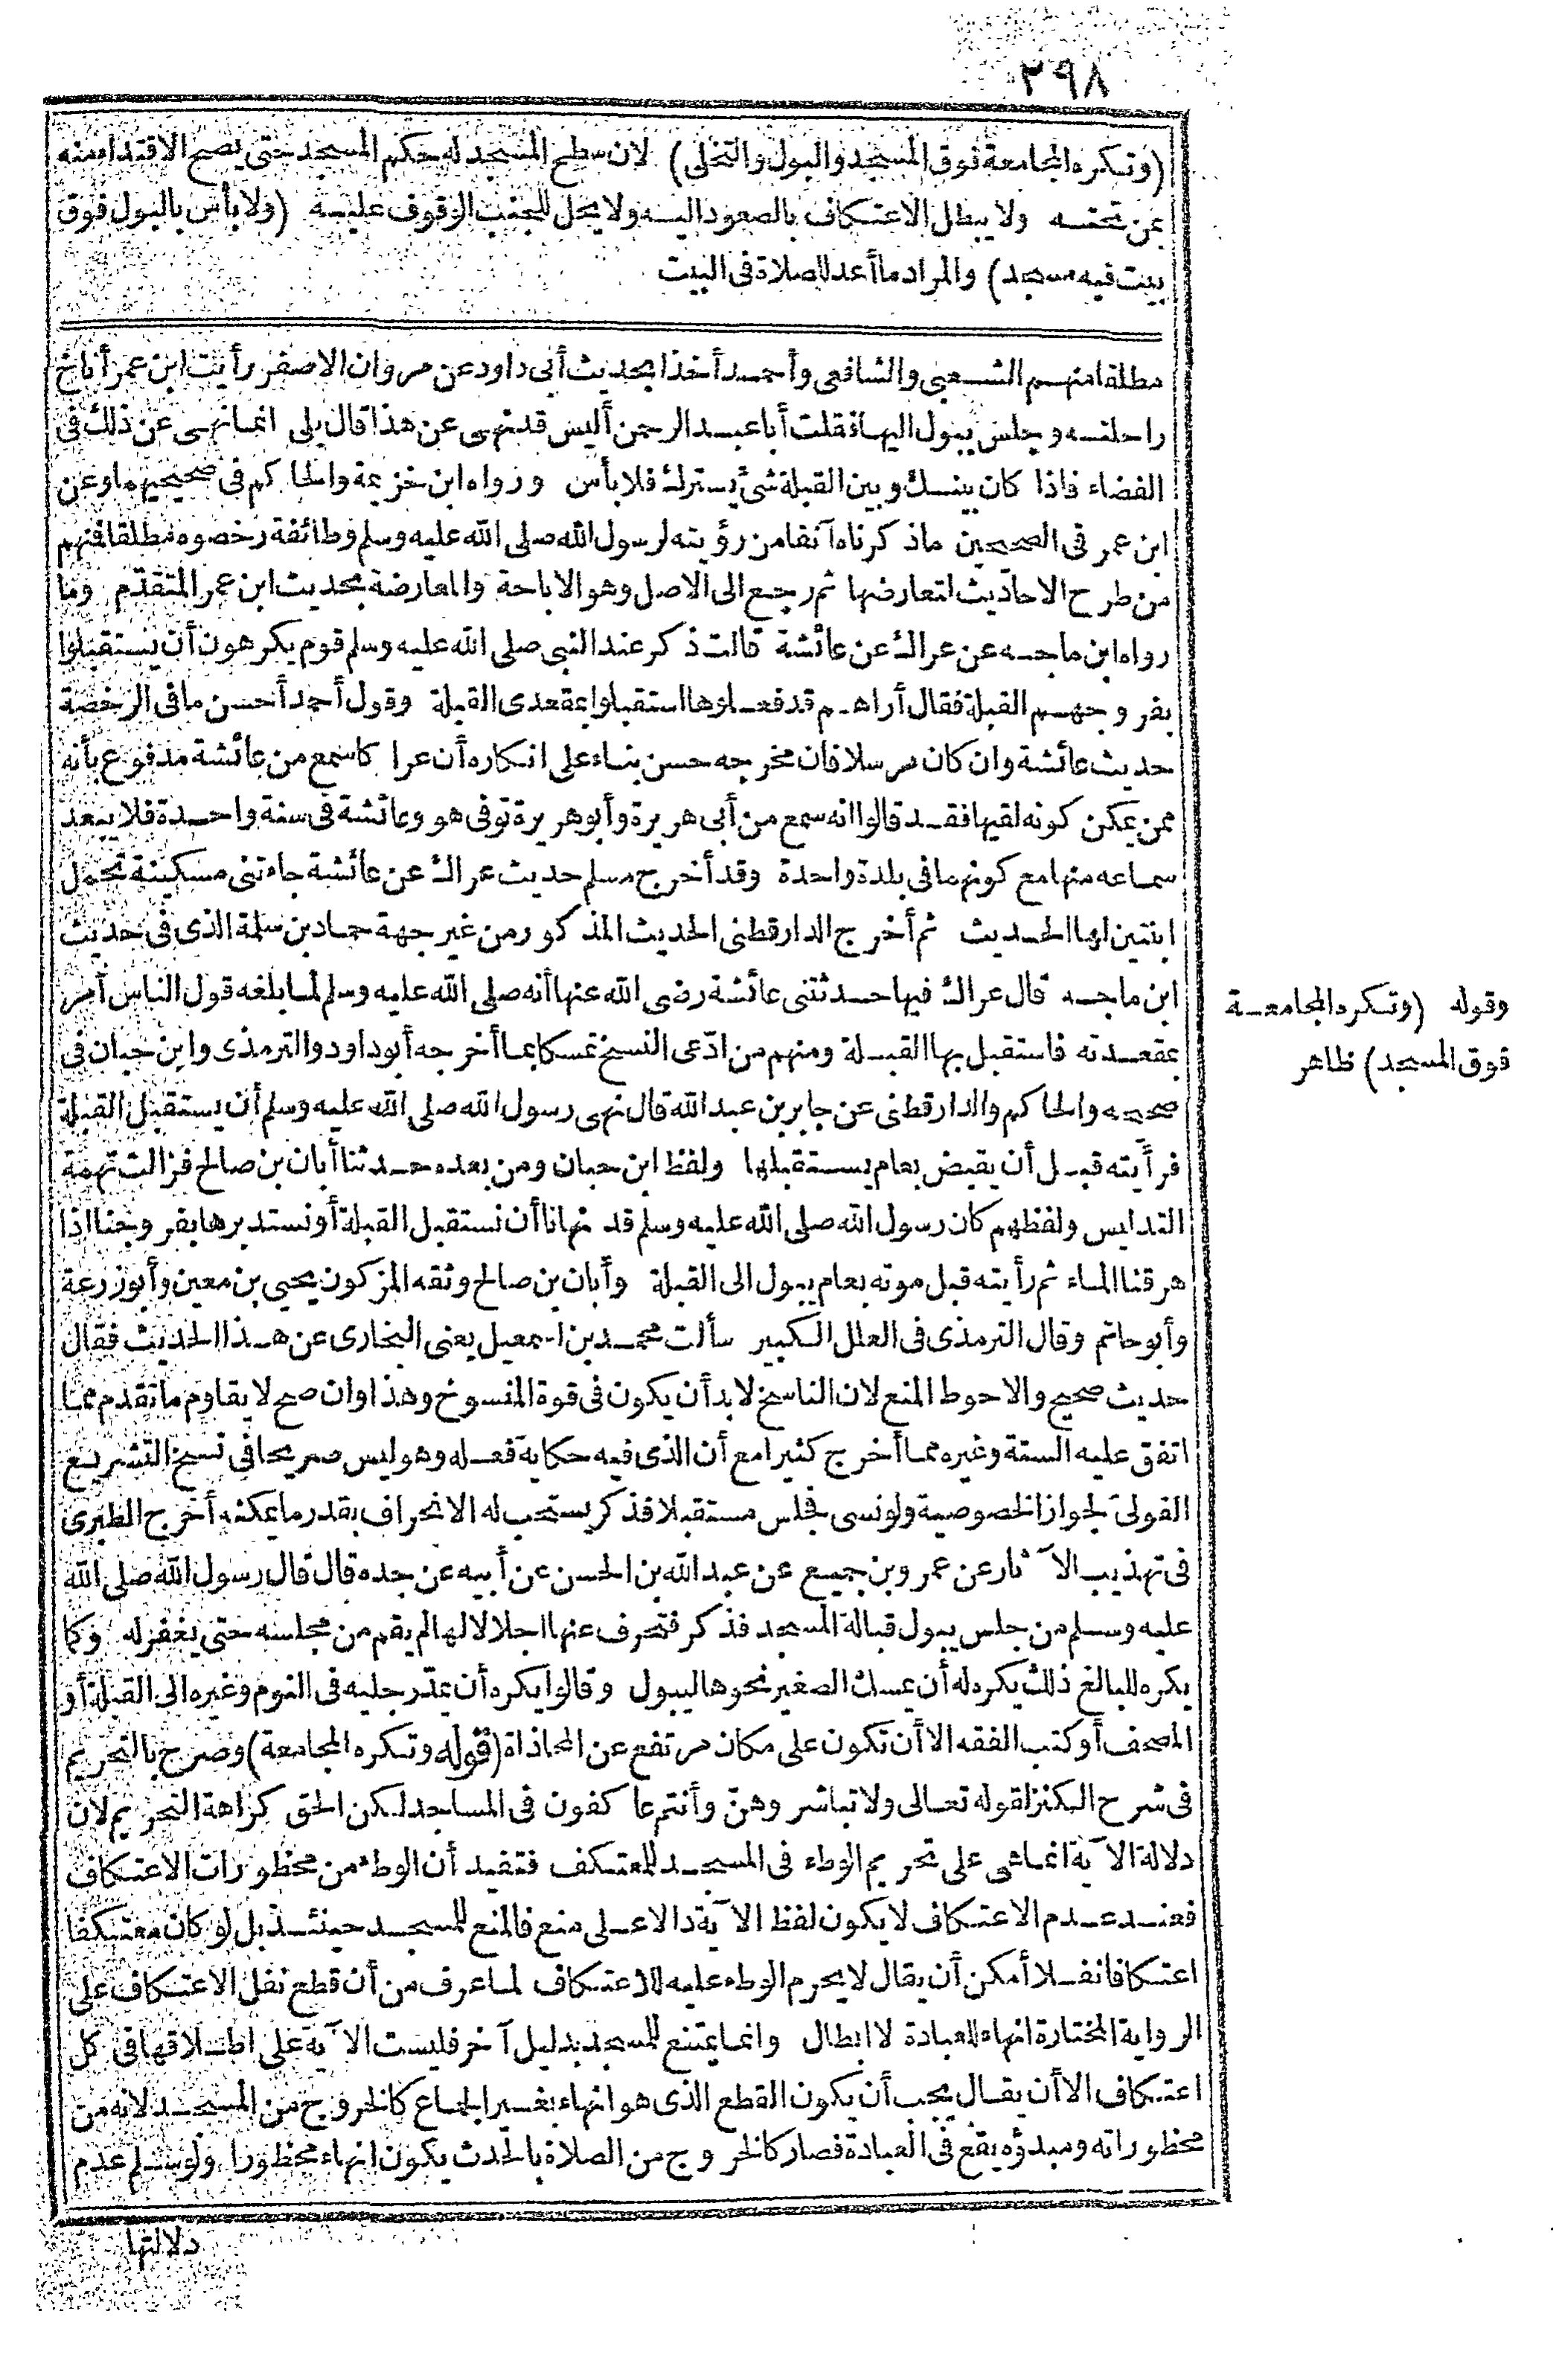 ٢٩٨
(وتكره المجامعة فوق المسجد والبول والتخلى) لان سطح المسجد له حكم المسجد حتى يصح الاقتداء منه
بمن تحته ولا يبطل الاعتكاف بالصعود اليه ولا يحل للجنب الوقوف عليه (ولا بأس بالبول فوق
بيت فيه مسجد) والمراد ما أعد للصلاة فى البيت
مطلقا منهم الشعبى والشافعى وأحمد أخذا بحديث أبى داود عن مروان الاصفر رأيت ابن عمر أناخ
راحلته وجلس يبول اليها فقلت أبا عبد الرحمن أليس قد نهى عن هذا قال بلى انما نهى عن ذلك فى
الفضاء فاذا كان بينك وبين القبلة شئ يسترك فلا بأس ورواه ابن خزيمة والحاكم فى صحيحيهما وعن
ابن عمر فى الصحيحين ماذكرناه آنفا من رؤيته لرسول الله صلى الله عليه وسلم وطائفة رخصوه مطلقا فمنهم
من طرح الاحاديث لتعارضها ثم رجع الى الاصل وهو الاباحة والمعارضة بحديث ابن عمر المتقدم وما
رواه ابن ماجه عن عراك عن عائشة قالت ذكر عند النبى صلى الله عليه وسلم قوم يكرهون أن يستقبلوا
بفروجهم القبلة فقال أراهم قد فعلوها استقبلوا بمقعدى القبلة وقول أحمد أحسن ما فى الرخصة
حديث عائشة وان كان مرسلا فان مخرجه حسن بناء على انكاره أن عراكا سمع من عائشة مدفوع بأنه
ممن يمكن كونه لقيها فقد قالوا انه سمع من أبى هريرة وأبو هريرة توفى هو وعائشة فى سنة واحدة فلا يبعد
سماعه منها مع كونهما فى بلدة واحدة وقد أخرج مسلم حديث عراك عن عائشة جاءتنى مسكينة تحمل
ابنتين لها الحديث ثم أخرج الدارقطنى الحديث المذكور من غير جهة حماد بن سلمة الذى فى حديث
ابن ماجه قال عراك فيها حدثتنى عائشة رضى الله عنها أنه صلى الله عليه وسلم لما بلغه قول الناس أمر
بمقعدته فاستقبل بها القبلة ومنهم من ادّعى النسخ تمسكا بما أخرجه أبو داود والترمذى وابن حبان فى
صحيحه والحاكم والدارقطنى عن جابر بن عبد الله قال نهى رسول الله صلى الله عليه وسلم أن يستقبل القبلة
فرأيته قبل أن يقبض بعام يستقبلها ولفظ ابن حبان ومن بعده حدثنا أبان بن صالح فزالت تهمة
التدليس ولفظهم كان رسول الله صلى الله عليه وسلم قد نهانا أن نستقبل القبلة أو نستدبرها بفروجنا اذا
هرقنا الماء ثم رأيته قبل موته بعام يبول الى القبلة وأبان بن صالح وثقه المزكون يحيى بن معين وأبو زرعة
وأبو حاتم وقال الترمذى فى العلل الكبير سألت محمد بن اسمعيل يعنى البخارى عن هذا الحديث فقال
حديث صحيح والاحوط المنع لان الناسخ لابد أن يكون فى قوة المنسوخ وهذا وان صح لا يقاوم ما تقدم مما
اتفق عليه الستة وغيره مما أخرج كثيرا مع أن الذى فيه حكاية فعله وهو ليس صريحا فى نسخ التشريع
القولىّ لجواز الخصوصية ولو نسى فجلس مستقبلا فذكر يستحب له الانحراف بقدر ما يمكنه أخرج الطبرى
فى تهذيب الآثار عن عمرو بن جميع عن عبد الله بن الحسن عن أبيه عن جده قال قال رسول الله صلى الله
عليه وسلم من جلس يبول قبالة المسجد فذكر فتحرف عنها اجلالا لها لم يقم من مجلسه حتى يغفر له وكما
يكره للبالغ ذلك يكره له أن يمسك الصغير نحوها ليبول وقالوا يكره أن يمدّ رجليه فى النوم وغيره الى القبلة أو
المصحف أو كتب الفقه الا أن تكون على مكان مرتفع عن المحاذاة (قوله وتكره المجامعة) وصرح بالتحريم
فى شرح الكنز لقوله تعالى ولا تباشروهنّ وأنتم عاكفون فى المساجد لكن الحق كراهة التحريم لان
دلالة الآية انما هى على تحريم الوطء فى المسجد للمعتكف فتفيد أن الوطء من محظورات الاعتكاف
فعند عدم الاعتكاف لا يكون لفظ الآية دالا على منع فالمنع للمسجد حينئذ بل لو كان معتكفا
اعتكافا نفلا أمكن أن يقال لا يحرم الوطء عليه للاعتكاف لما عرف من أن قطع نفل الاعتكاف على
الرواية المختارة انهاء للعبادة لا ابطال وانما يمتنع للمسجد بدليل آخر فليست الآية على اطلاقها فى كل
اعتكاف الا أن يقال يجب أن يكون القطع الذى هو انهاء بغير الجماع كالخروج من المسجد لانه من
محظوراته ومبدؤه يقع فى العبادة فصار كالخروج من الصلاة بالحدث يكون انهاء محظورا ولو سلم عدم
دلالتها
وقوله (وتكره المجامعة
فوق المسجد) ظاهر